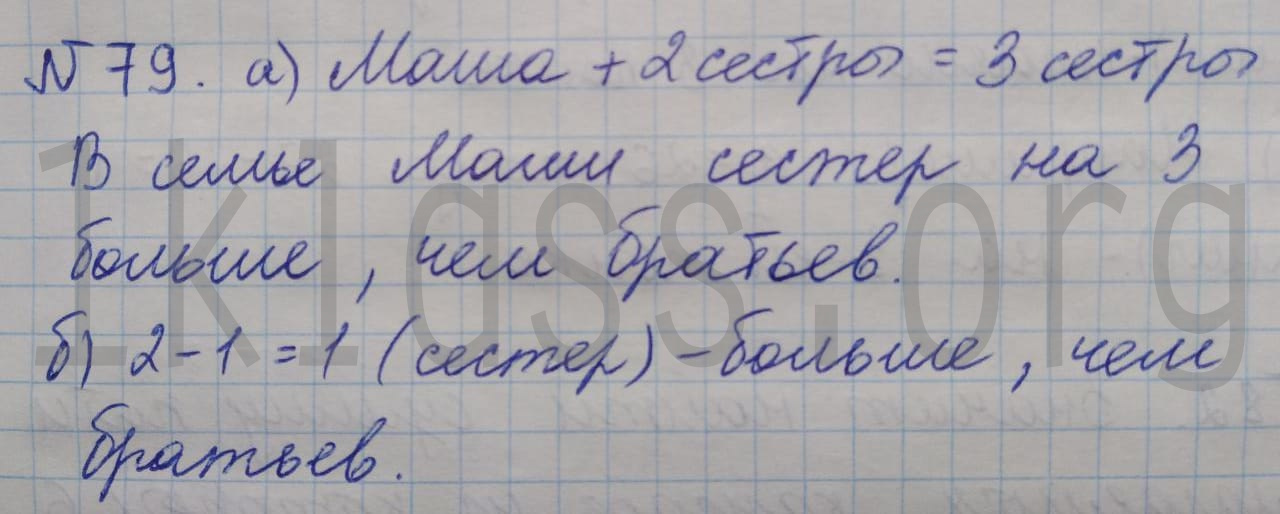 № 79. а) Маша + 2 сестры = 3 сестры
В семье Маши сестер на 3
больше, чем братьев.
б) 2 - 1 = 1 (сестер) - больше, чем
братьев.
1klass.org